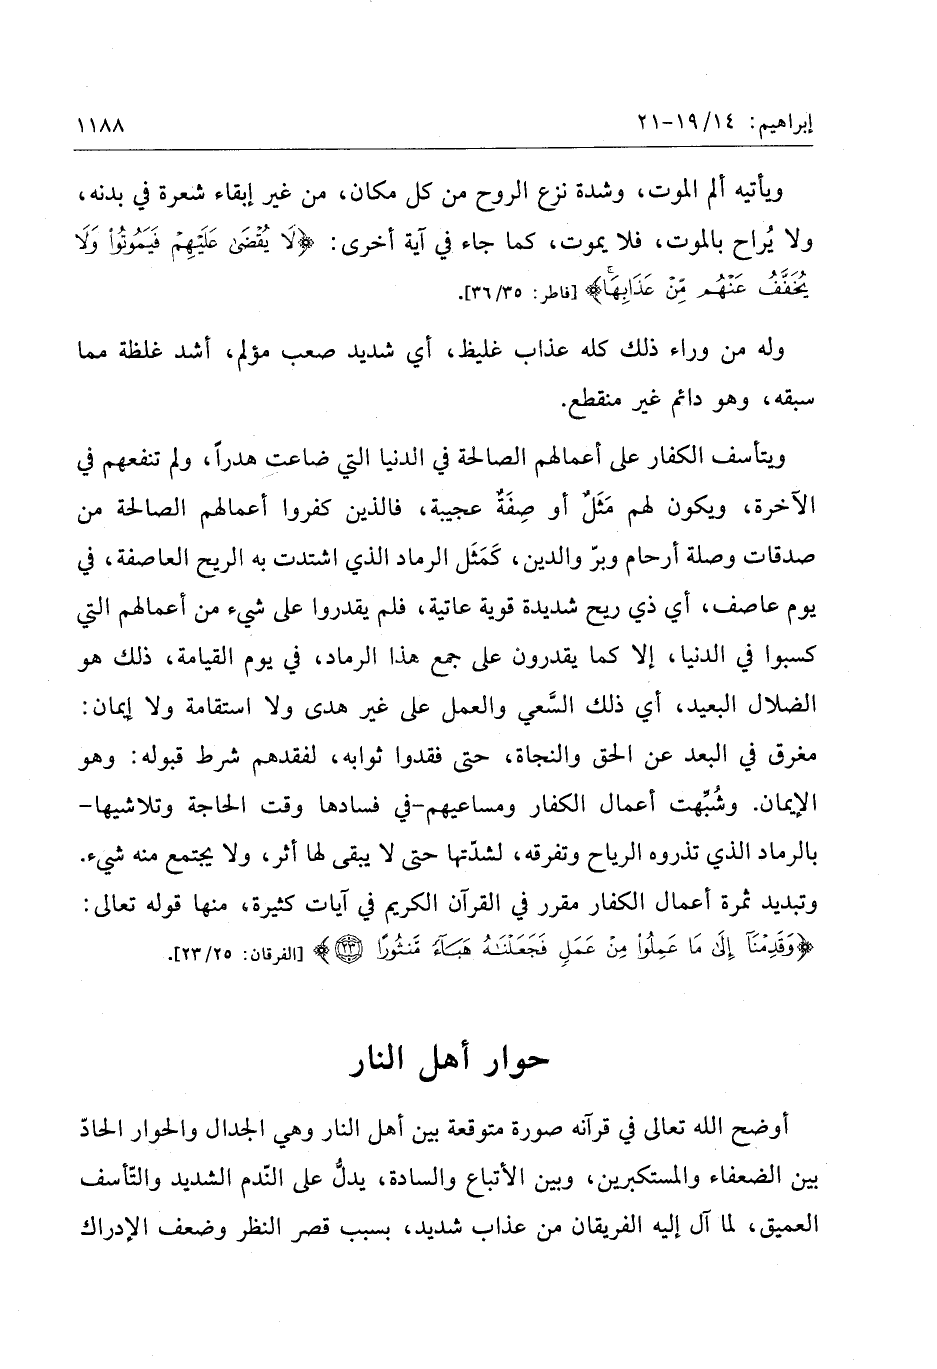 إبراهيم: ١٩/١٤-٢١ ١١٨٨
ويأتيه ألم الموت، وشدة نزع الروح من كل مكان، من غير إبقاء شعرة في بدنه،
ولا يُراح بالموت، فلا يموت، كما جاء في آية أخرى: ﴿لَا يُقْضَىٰ عَلَيْهِمْ فَيَمُوتُوا۟ وَلَا
يُخَفَّفُ عَنْهُم مِّنْ عَذَابِهَاۚ﴾ [فاطر: ٣٦/٣٥].
وله من وراء ذلك كله عذاب غليظ، أي شديد صعب مؤلم، أشد غلظة مما
سبقه، وهو دائم غير منقطع.
ويتأسف الكفار على أعمالهم الصالحة في الدنيا التي ضاعت هدراً، ولم تنفعهم في
الآخرة، ويكون لهم مَثَلٌ أو صِفَةٌ عجيبة، فالذين كفروا أعمالهم الصالحة من
صدقات وصلة أرحام وبرّ والدين، كَمَثَل الرماد الذي اشتدت به الريح العاصفة، في
يوم عاصف، أي ذي ريح شديدة قوية عاتية، فلم يقدروا على شيء من أعمالهم التي
كسبوا في الدنيا، إلا كما يقدرون على جمع هذا الرماد، في يوم القيامة، ذلك هو
الضلال البعيد، أي ذلك السَّعي والعمل على غير هدى ولا استقامة ولا إيمان:
مغرق في البعد عن الحق والنجاة، حتى فقدوا ثوابه، لفقدهم شرط قبوله: وهو
الإيمان. وشُبِّهت أعمال الكفار ومساعيهم-في فسادها وقت الحاجة وتلاشيها-
بالرماد الذي تذروه الرياح وتفرقه، لشدّتها حتى لا يبقى لها أثر، ولا يجتمع منه شيء.
وتبديد ثمرة أعمال الكفار مقرر في القرآن الكريم في آيات كثيرة، منها قوله تعالى:
﴿وَقَدِمْنَآ إِلَىٰ مَا عَمِلُوا۟ مِنْ عَمَلٍ فَجَعَلْنَٰهُ هَبَآءً مَّنثُورًا ٢٣﴾ [الفرقان: ٢٣/٢٥].
حوار أهل النار
أوضح الله تعالى في قرآنه صورة متوقعة بين أهل النار وهي الجدال والحوار الحادّ
بين الضعفاء والمستكبرين، وبين الأتباع والسادة، يدلُّ على النّدم الشديد والتّأسف
العميق، لما آل إليه الفريقان من عذاب شديد، بسبب قصر النظر وضعف الإدراك